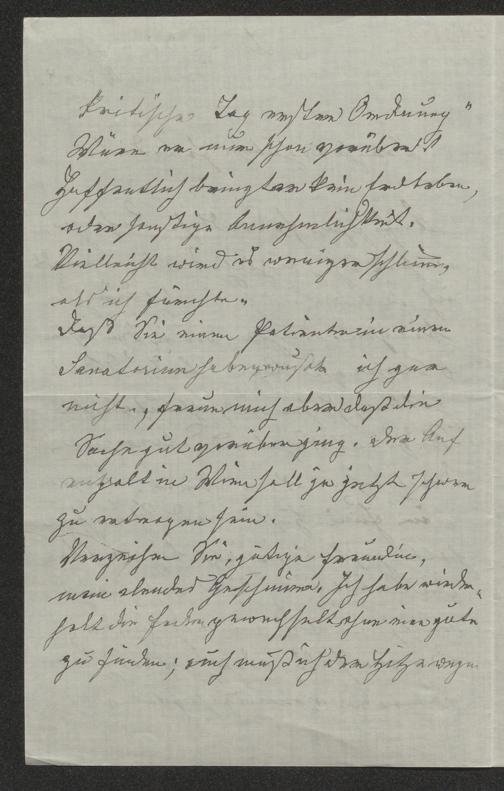 kritischer Tag erster Ordnung"
Wäre er nur schon vorüber!
Hoffentlich bringt er kein Erdbeben,
oder sonstige Annehmlichkeit.
Vielleicht wird es weniger schlimm,
als ich fürchte.
Daß Sie einen Patienten in einem
Sanatorium haben, wußte ich gar
nicht, freue mich aber daß die
Sache gut vorüber ging. Der Auf
enthalt in Wien soll ja jetzt schwer
zu ertragen sein.
Verzeihen Sie, gütige Freundin,
mein elendes Geschmiere. Ich habe wieder-
holt die Feder gewechselt ohne eine gute
zu finden; auch muß ich der Hitze wegen